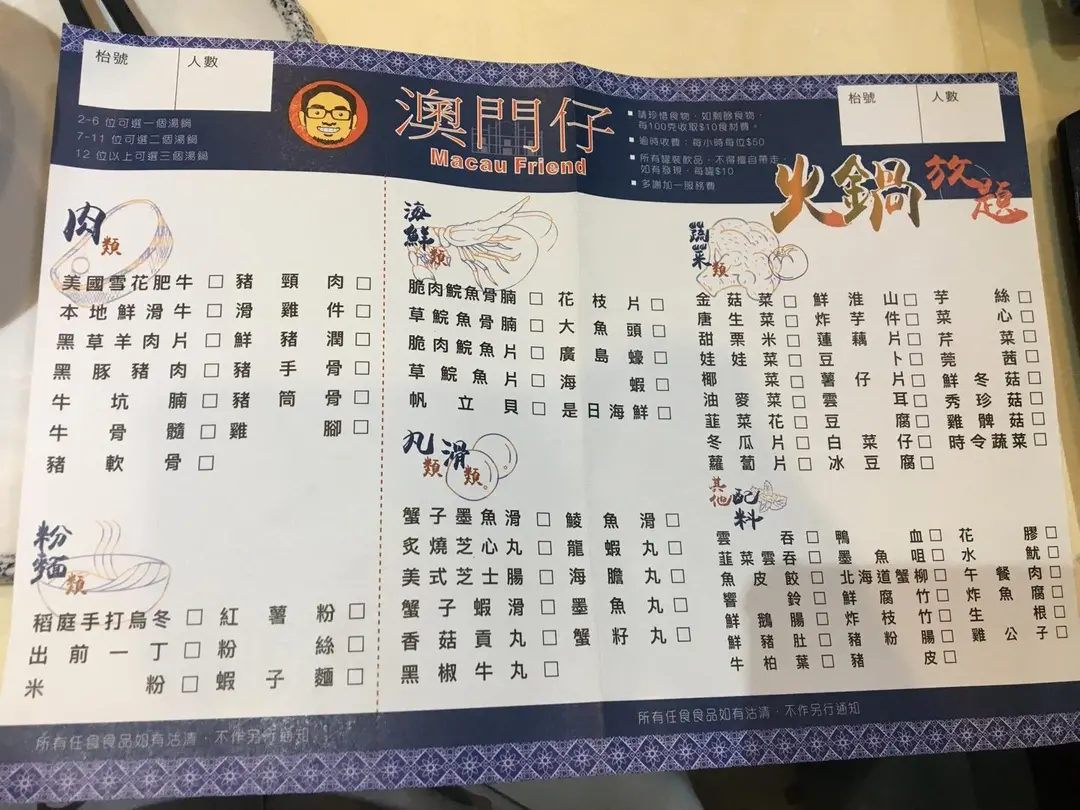 枱號 人數
2-6 位可選一個湯鍋
7-11 位可選二個湯鍋
12 位以上可選三個湯鍋
澳門仔
Macau Friend
請珍惜食物，如剩餘食物，
每100克收取$10食材費。
逾時收費：每小時每位$50
所有罐裝飲品，不得擅自帶走
如有發現，每罐$10
多謝加一服務費
枱號 人數
火鍋放題
肉類
美國雪花肥牛 豬頸肉
本地鮮滑牛 滑雞件
黑草羊肉片 鮮豬潤
黑豚豬肉 豬手骨
牛坑腩 豬筒骨
牛骨髓 雞腳
豬軟骨
粉麵類
稻庭手打烏冬 紅薯粉
出前一丁 粉絲
米粉 蝦子麵
海鮮類
脆肉鯇魚骨腩 花枝片
草鯇魚骨腩 大魚頭
脆肉鯇魚片 廣島蠔
草鯇魚片 海蝦
帆立貝 是日海鮮
丸類 滑類
蟹子墨魚滑 鯪魚滑
炙燒芝心丸 龍蝦丸
美式芝士腸 海膽丸
蟹子蝦滑 墨魚丸
香菇貢丸 蟹籽丸
黑椒牛丸
蔬菜類
金菇菜 鮮淮山 芋絲
唐生菜 炸芋件 菜心
甜粟米 蓮藕片 芹菜
娃娃菜 豆卜 莞茜
椰菜 薯仔片 鮮冬菇
油麥菜 雲耳 秀珍菇
韮菜花 豆腐 雞髀菇
冬瓜片 白菜仔 時令蔬菜
蘿蔔片 冰豆腐
其他配料
雲吞 鴨血 花膠
韮菜雲吞 墨魚咀 水魷
魚皮餃 北海道蟹柳 午餐肉
響鈴 鮮腐竹 炸魚腐
鮮鵝腸 炸枝竹 生根
鮮豬肚 豬粉腸 雞公子
牛柏葉 豬皮
所有任食食品如有沽清，不作另行通知
所有任食食品如有沽清，不作另行通知